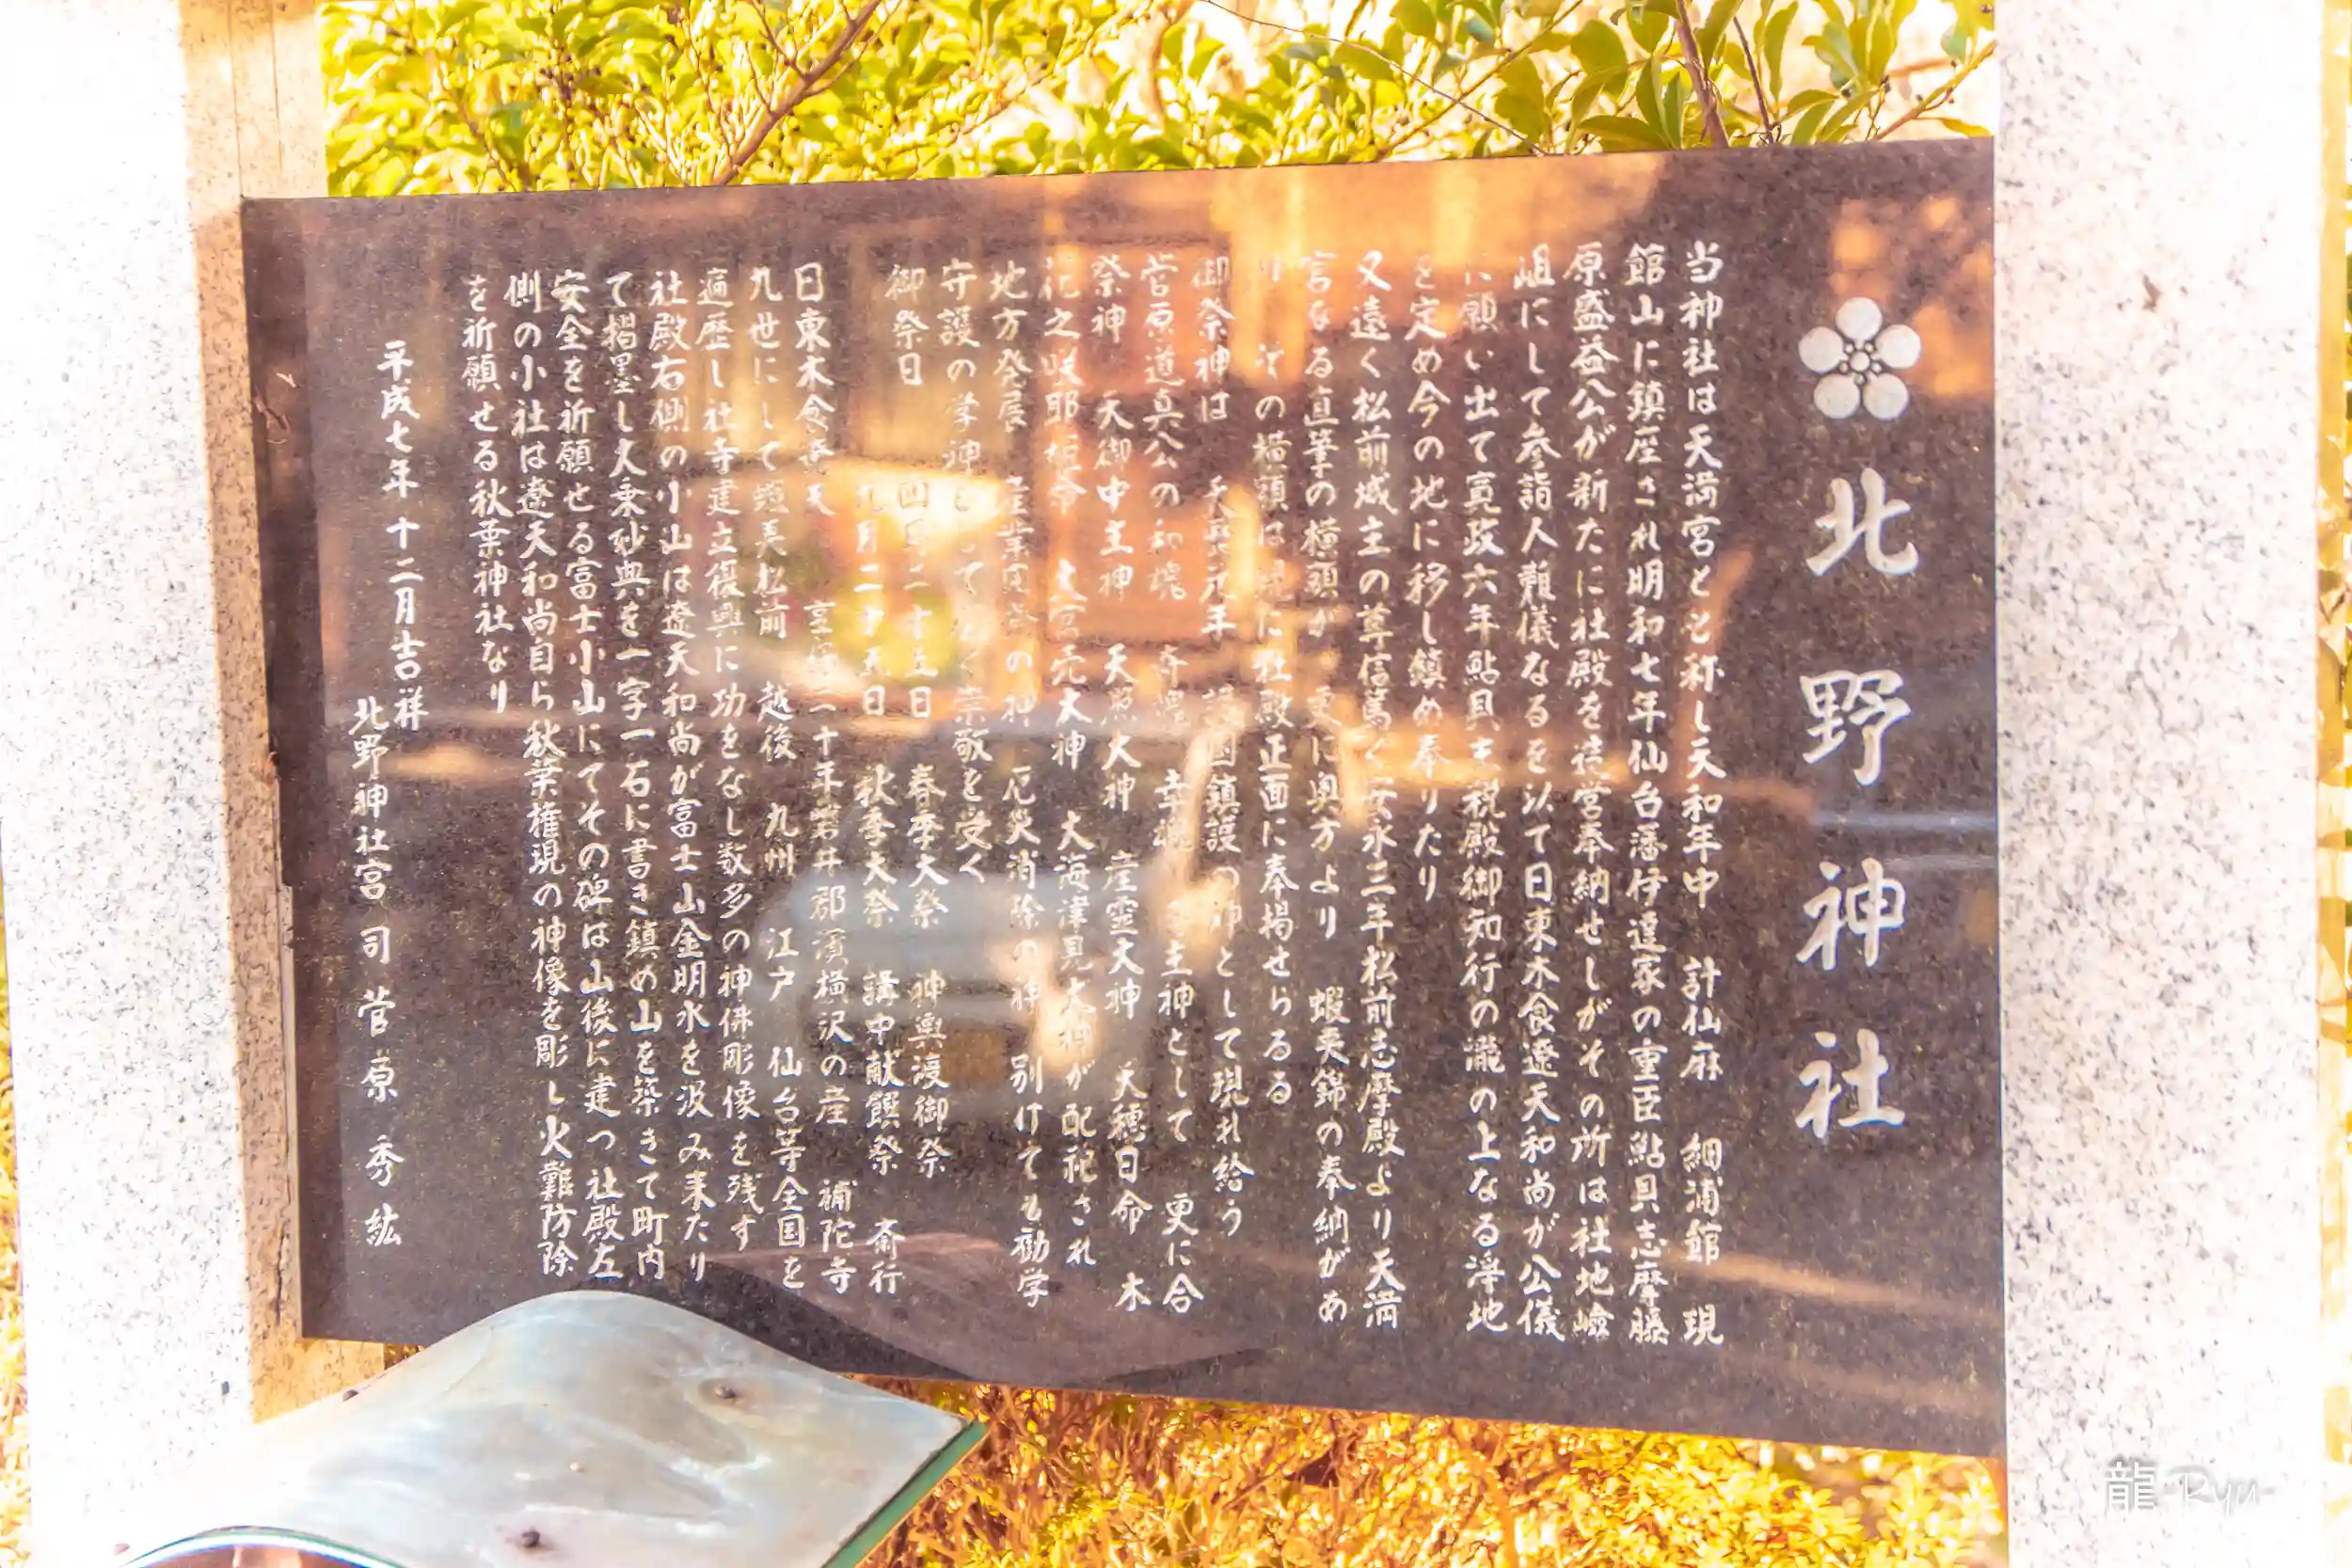 北野神社
当神社は天満宮とと称し天和年中 計仙麻 細浦館 現
館山に鎮座され明和七年仙台藩伊達家の重臣鮎貝志摩藤
原盛益公が新たに社殿を造営奉納せしがその所は社地嶮
岨にして参詣人難儀なるを以て日東木食遼天和尚が公儀
に願い出て寛政六年鮎貝主税殿御知行の瀧の上なる浄地
を定め今の地に移し鎮め奉りたり
又遠く松前城主の尊信篤く安永三年松前志摩殿より天満
宮なる直筆の横額が 更に奥方より 蝦夷錦の奉納があ
の横額は現に社殿正面に奉掲せらるる
御祭神は 護国鎮護の神として現れ給う
菅原道真公の和魂 奇魂 幸魂 主神として 更に合
祭神 天御中主神 天照大神 産霊大神 天穂日命 木
花之咲耶姫命 大宮売大神 大海津見大神が配祀され
地方発展 産業開発の神 厄災消除の神 別けても勧学
守護の学神として 崇敬を受く
御祭日 四月二十五日 春季大祭 神輿渡御祭
九月二十五日 秋季大祭 講中献饌祭 斎行
日東木食遼天 享保二十年磐井郡濱横沢の産 補陀寺
九世にして 松前 越後 九州 江戸 仙台等全国を
遍歴し社寺建立復興に功をなし数多の神佛彫像を残す
社殿右側の小山は遼天和尚が富士山金明水を汲み来たり
て摺墨し大乗妙典を一字一石に書き鎮め山を築きて町内
安全を祈願せる富士小山にてその碑は山後に建つ社殿左
側の小社は遼天和尚自ら秋葉権現の神像を彫し火難防除
を祈願せる秋葉神社なり
平成七年十二月吉祥
北野神社宮司 菅原秀紘
龍 Ryu